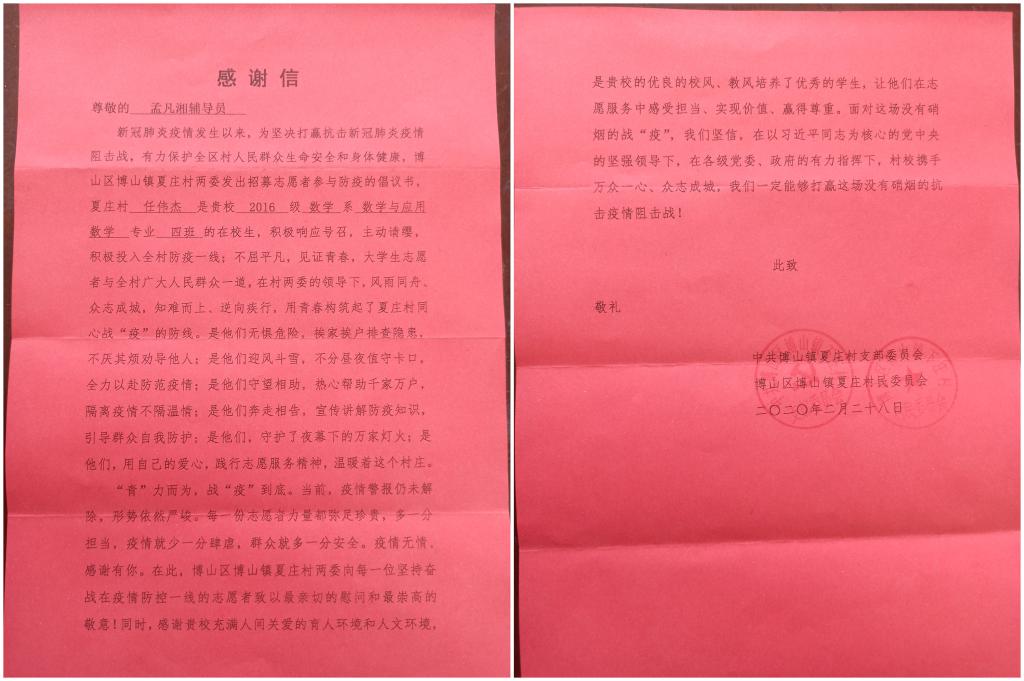 感谢信
尊敬的 孟凡湘辅导员
新冠肺炎疫情发生以来，为坚决打赢抗击新冠肺炎疫情
阻击战，有力保护全区村人民群众生命安全和身体健康，博
山区博山镇夏庄村两委发出招募志愿者参与防疫的倡议书，
夏庄村 任伟杰 是贵校 2016 级 数学 系 数学与应用
数学 专业 四班 的在校生，积极响应号召，主动请缨，
积极投入全村防疫一线；不屈平凡，见证青春，大学生志愿
者与全村广大人民群众一道，在村两委的领导下，风雨同舟、
众志成城，知难而上、逆向疾行，用青春构筑起了夏庄村同
心战“疫”的防线。是他们无惧危险，挨家挨户排查隐患，
不厌其烦劝导他人；是他们迎风斗雪，不分昼夜值守卡口，
全力以赴防范疫情；是他们守望相助，热心帮助千家万户，
隔离疫情不隔温情；是他们奔走相告，宣传讲解防疫知识，
引导群众自我防护；是他们，守护了夜幕下的万家灯火；是
他们，用自己的爱心，践行志愿服务精神，温暖着这个村庄。
“青”力而为，战“疫”到底。当前，疫情警报仍未解
除，形势依然严峻。每一份志愿者力量都弥足珍贵，多一分
担当，疫情就少一分肆虐，群众就多一分安全。疫情无情、
感谢有你。在此，博山区博山镇夏庄村两委向每一位坚持奋
战在疫情防控一线的志愿者致以最亲切的慰问和最崇高的
敬意！同时，感谢贵校充满人间关爱的育人环境和人文环境，
是贵校的优良的校风、教风培养了优秀的学生，让他们在志
愿服务中感受担当、实现价值、赢得尊重。面对这场没有硝
烟的战“疫”，我们坚信，在以习近平同志为核心的党中央
的坚强领导下，在各级党委、政府的有力指挥下，村校携手
万众一心、众志成城，我们一定能够打赢这场没有硝烟的抗
击疫情阻击战！
此致
敬礼
中共博山镇夏庄村支部委员会
博山区博山镇夏庄村民委员会
二〇二〇年二月二十八日